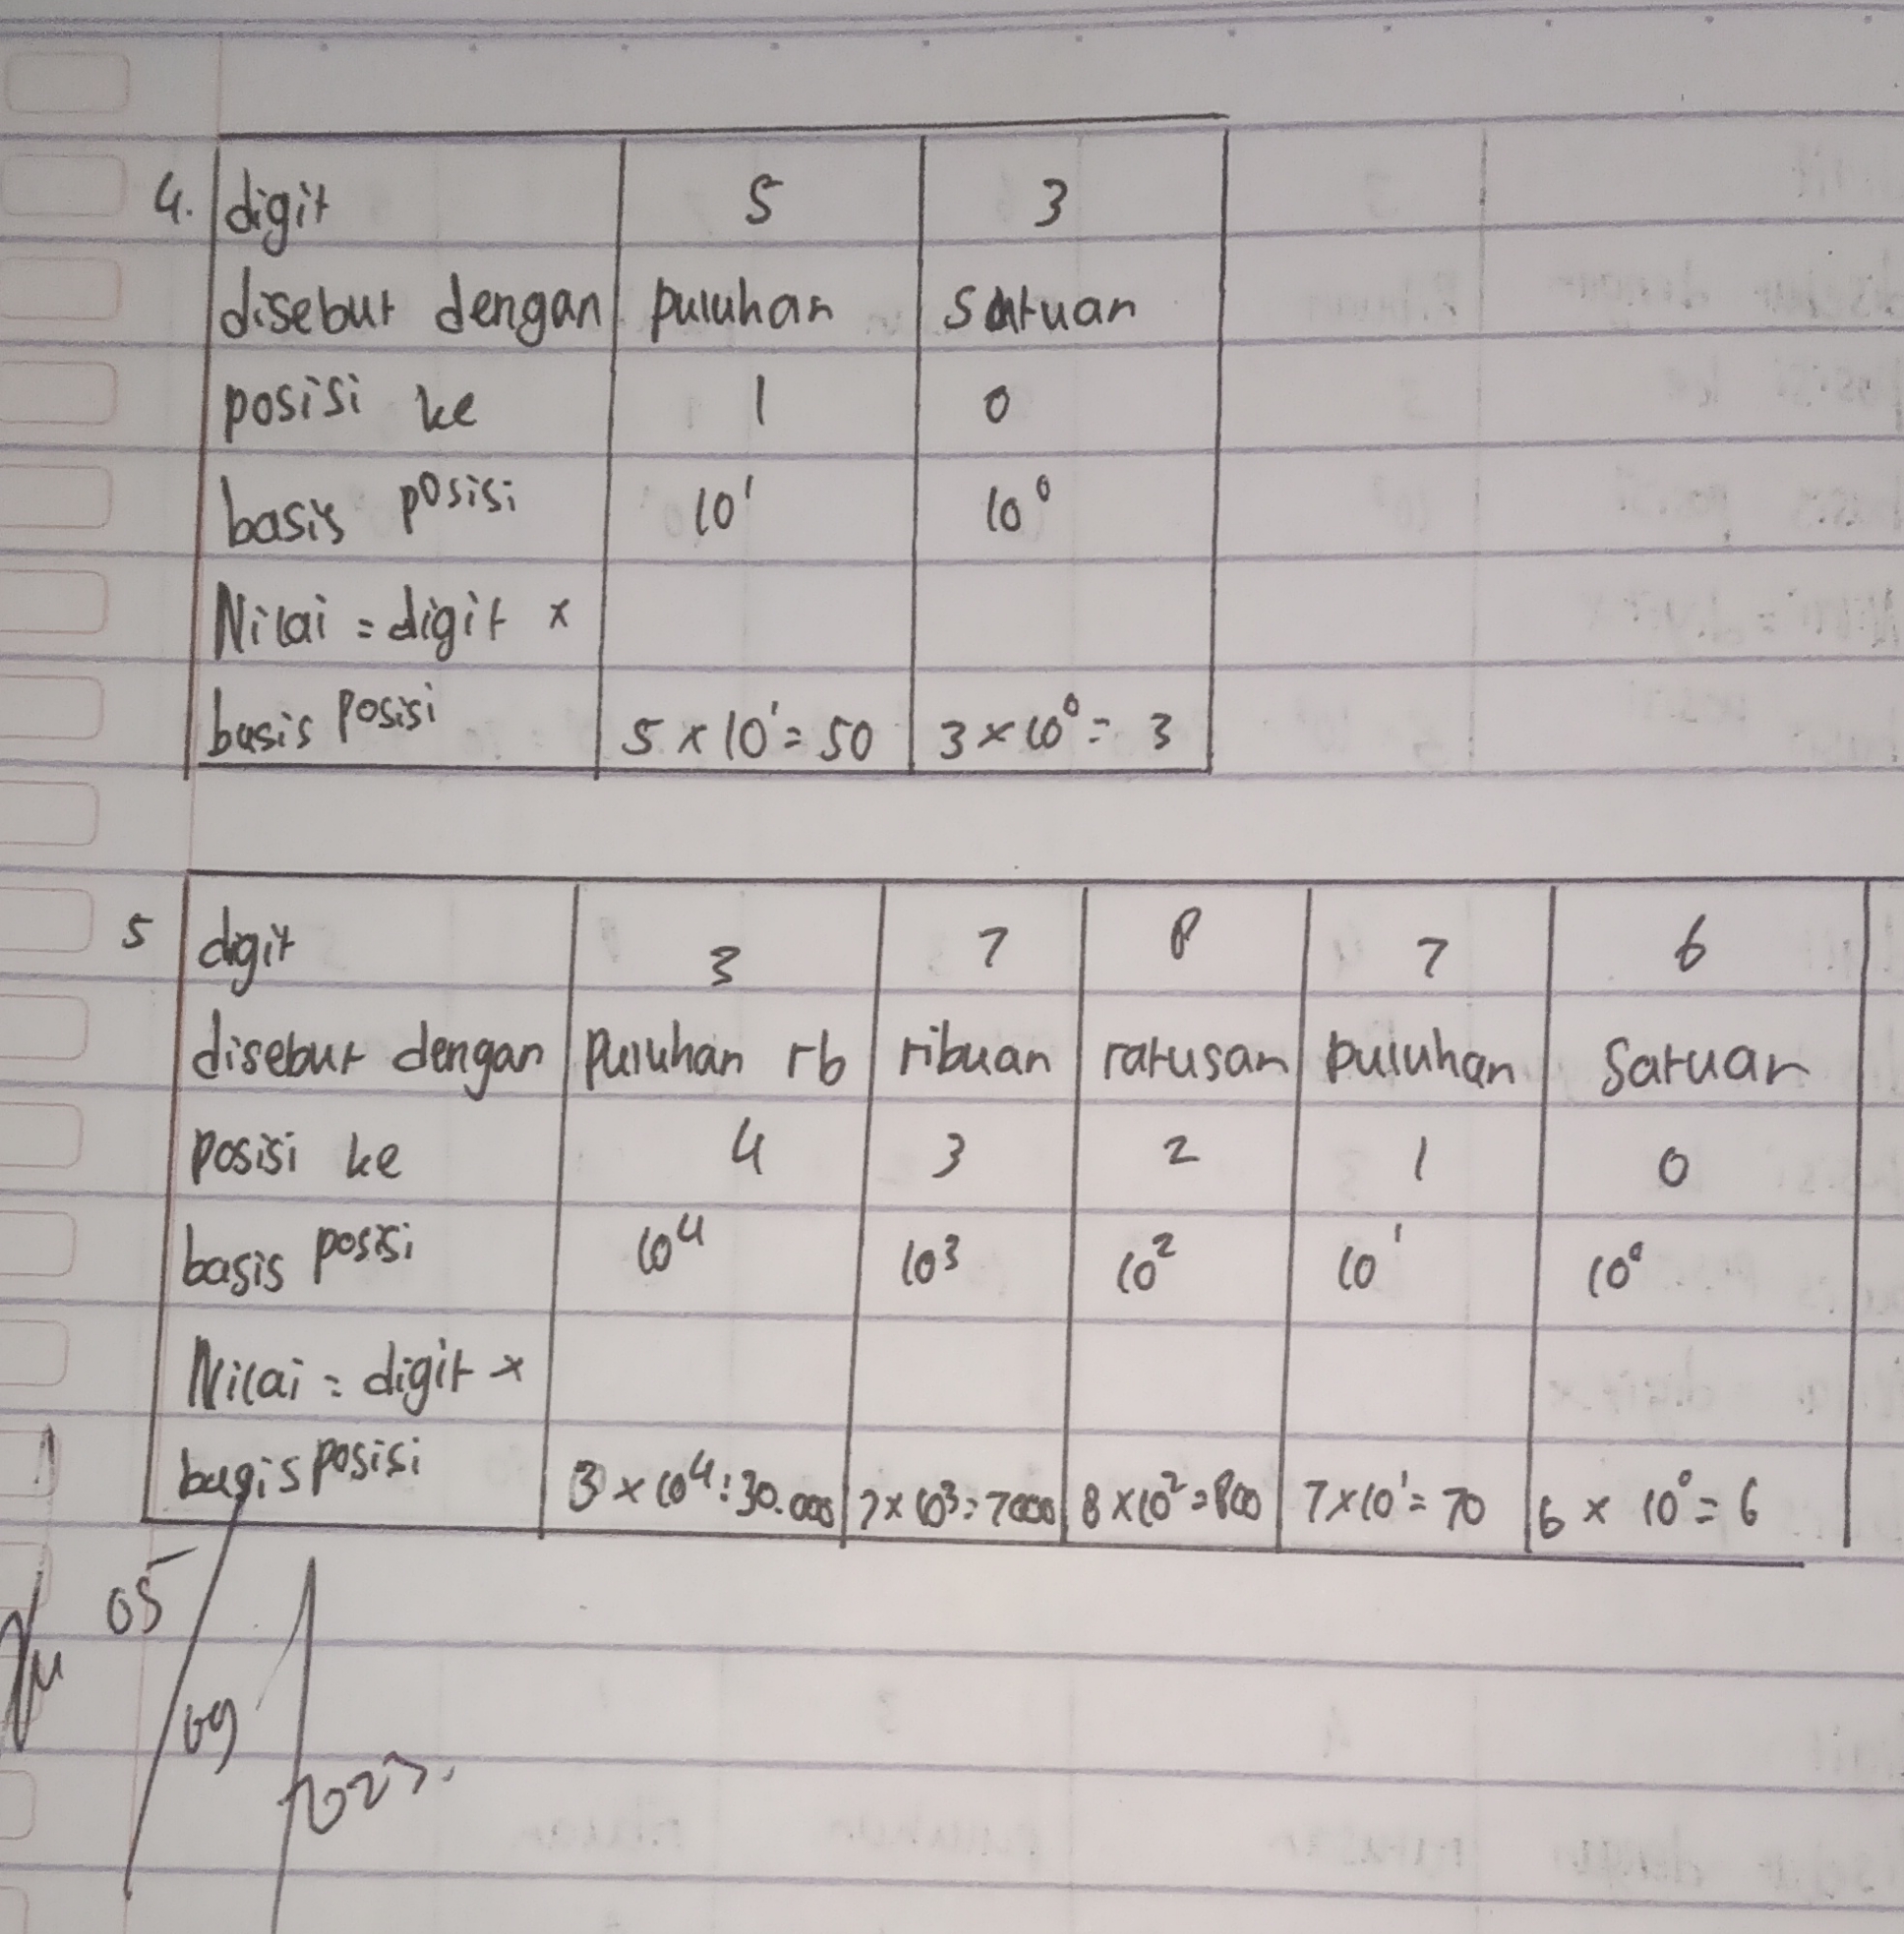 4. digit 5 3
disebut dengan puluhan satuan
posisi ke 1 0
basis posisi 10¹ 10⁰
Nilai = digit ×
basis posisi 5 × 10¹ = 50 3 × 10⁰ = 3
5 digit 3 7 8 7 6
disebut dengan puluhan rb ribuan ratusan puluhan satuan
posisi ke 4 3 2 1 0
basis posisi 10⁴ 10³ 10² 10¹ 10⁰
Nilai = digit ×
basis posisi 3 × 10⁴ = 30.000 7 × 10³ = 7000 8 × 10² = 800 7 × 10¹ = 70 6 × 10⁰ = 6
05
09